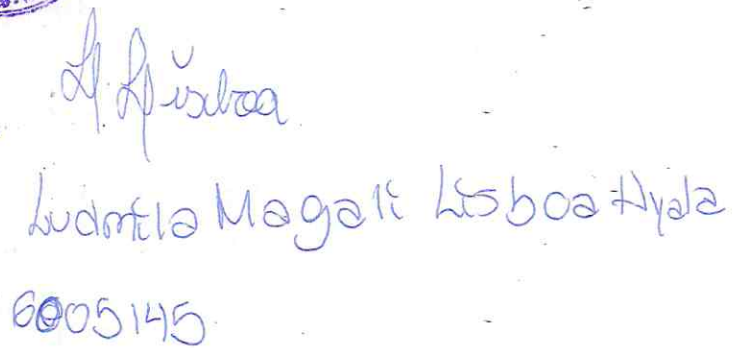 L. Lisboa
Ludmila Magali Lisboa Ayala
6005145